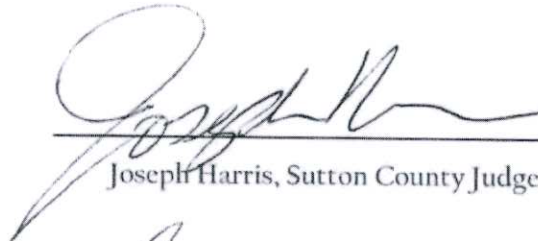 Joseph H
Joseph Harris, Sutton County Judge